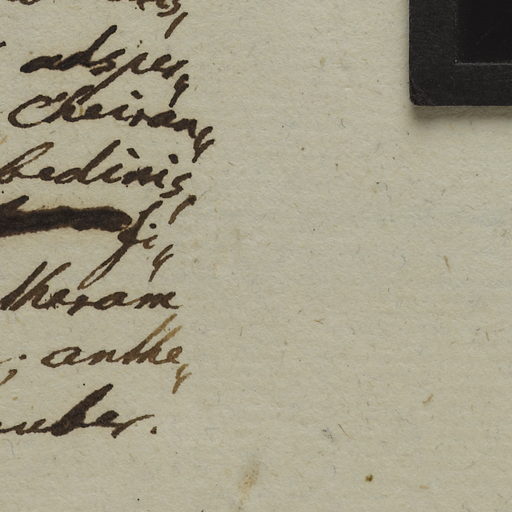 adsper„
Cheiran„
bedinis„
fi„
theram
; anthe„